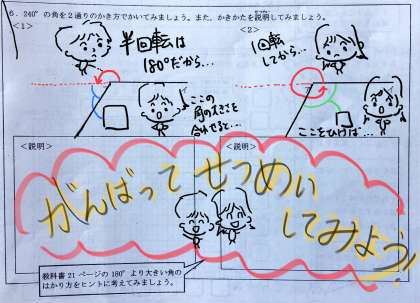 6. 240°の角を2通りのかき方でかいてみましょう。また、かきかたを説明してみましょう。
<1>
半回転は
180°だから…
ここの
角の大きさを
合わせると…
<2>
1回転
してから…
ここをひけば…
<説明>
<説明>
がんばってせつめい
してみよう!
教科書21ページの180°より大きい角の
はかり方をヒントに考えてみましょう。